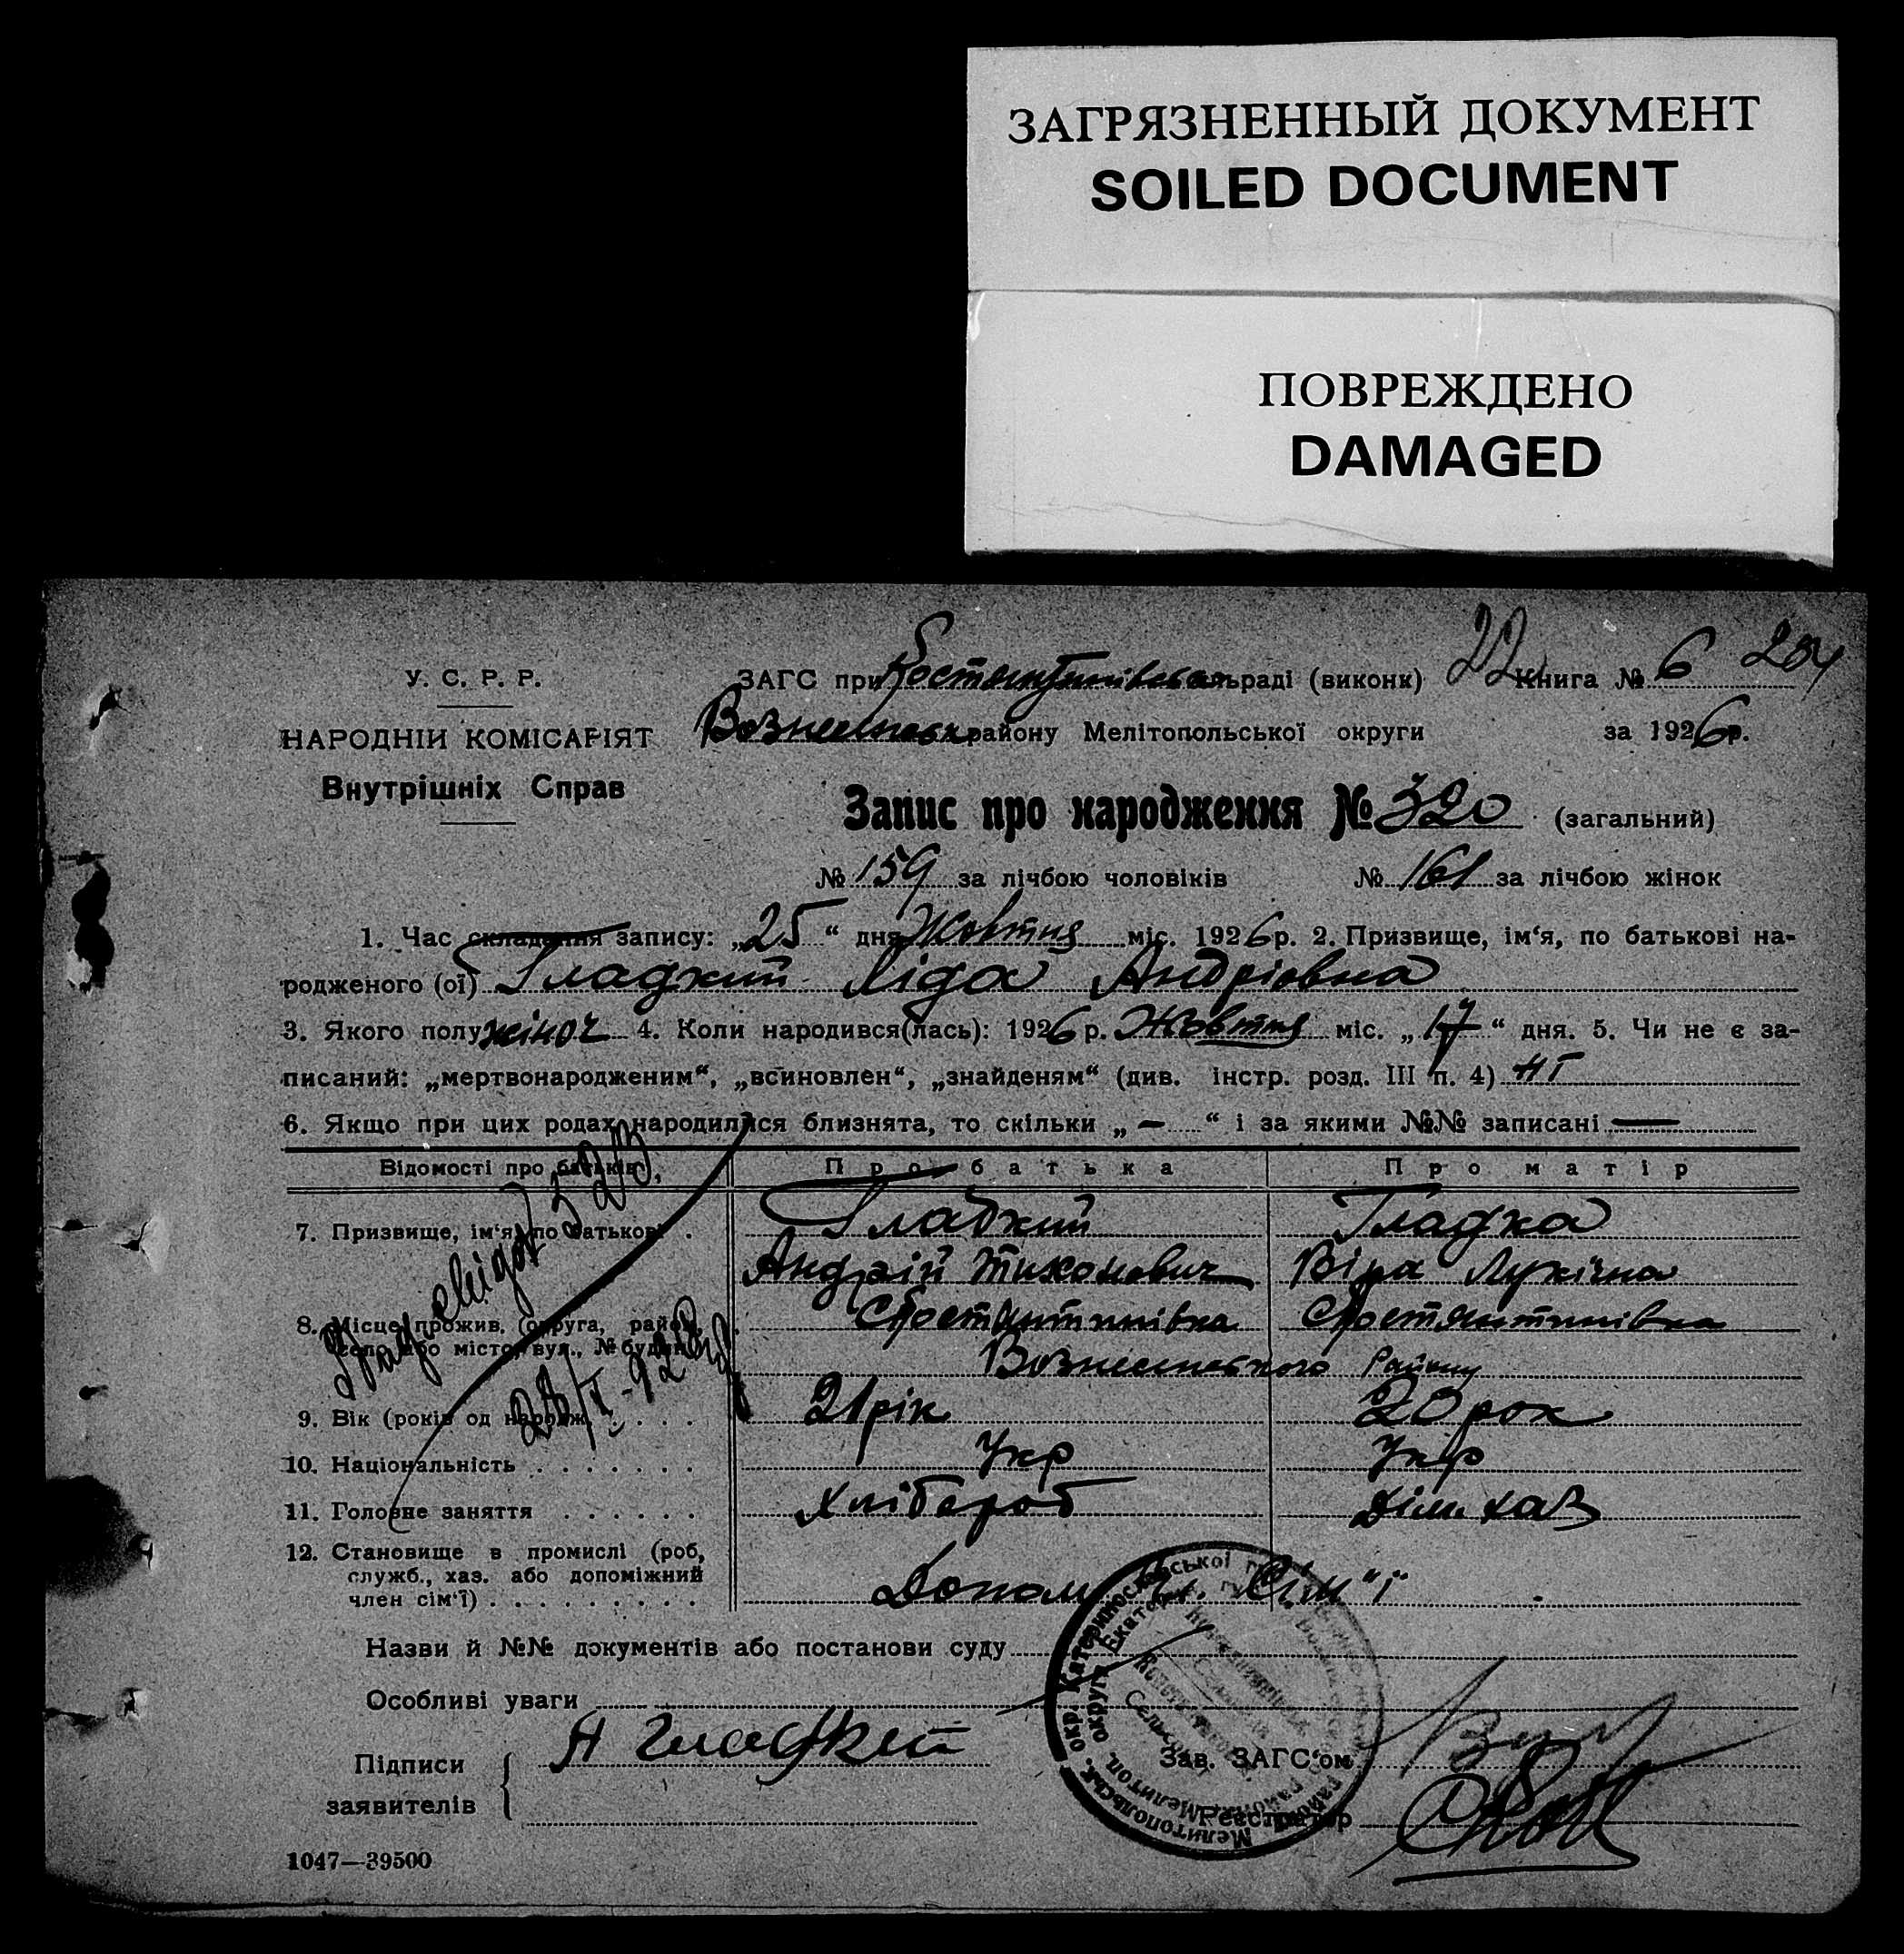 ЗАГРЯЗНЕННЫЙ ДОКУМЕНТ
SOILED DOCUMENT
ПОВРЕЖДЕНО
DAMAGED
У. С. Р. Р.
ЗАГС при раді (виконк) 22 Книга № 6 204
НАРОДНІЙ КОМІСАРІЯТ
району Мелітопольської округи за 1926 р.
Внутрішніх Справ
Запис про народження № 320 (загальний)
№ 159 за лічбою чоловіків № 161 за лічбою жінок
1. Час складання запису: „25“ дня Жовтня міс. 1926 р. 2. Призвище, ім‘я, по батькові на-
родженого (ої) Гладкий Ліда Андріовна
3. Якого полу жіноч 4. Коли народився(лась): 1926 р. Жовтня міс. „17“ дня. 5. Чи не є за-
писаний: „мертвонародженим“, „всиновлен“, „знайденям“ (див. інстр. розд. III п. 4) ні
6. Якщо при цих родах народилися близнята, то скільки „—“ і за якими №№ записані —
Відомості про батьків. Про батька Про матір
7. Призвище, ім‘я, по батькові . Гладкий Гладка
Андрій Тихонович Віра Лукічна
8. Місце прожив. (округа, район, Костянтинівка Костянтинівка
село або місто, вул., № будин. Вознесенського Району
9. Вік (років од народж. . . . . . 21 рік 20 рок
10. Національність . . . . . . . Укр Укр
11. Головне заняття . . . . . . Хлібороб Дім. хаз
12. Становище в промислі (роб,
служб., хаз. або допоміжний
член сім‘ї) . . . . . . . . . Допом Сім"ї
Назви й №№ документів або постанови суду
Особливі уваги
Підписи А Гладкий
Зав. ЗАГС‘ом
заявителів
Реєстратор
1047—39500